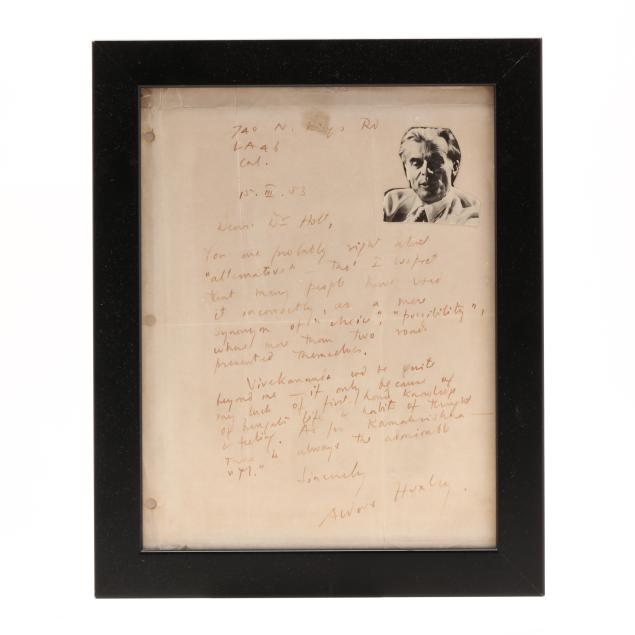 740 N. Kings Rd
LA 46
Cal.
15. III. 53
Dear Dr Holt,
You are probably right about
"alternatives" — tho' I suspect
that many people have used
it incorrectly, as a mere
synonym of "choice", "possibility",
when more than two roads
presented themselves.
Vivekananda wd be quite
beyond me — if only because of
my lack of first hand knowledge
of Bengali life & habits of thought
& feeling. As for Ramakrishna —
there is always the admirable
"M."
Sincerely
Aldous Huxley.